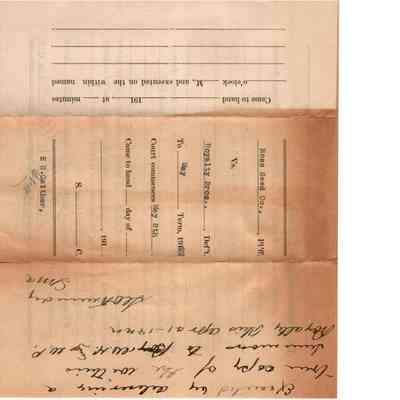 Ross Seed Co., Pltff.
Vs.
Royalty Bros., Deft.
To May Term, 19
Court commences May 8th
Came to hand day of
191
S. C.
E B Walther,
Came to hand 191 at minutes
o'clock M., and executed on the within named
Executed by delivering a
true copy of the within
summons to W. P.
Royalty this Apr 21-1922